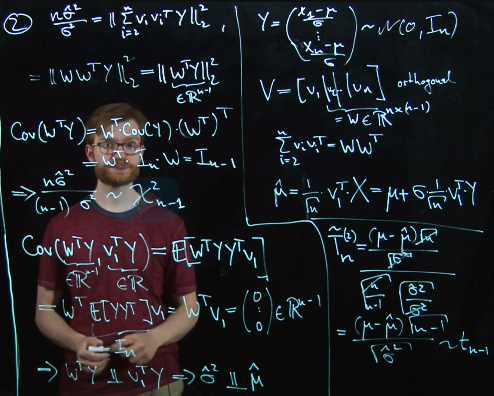 ② nσ̂²/σ² = ‖ Σ_{i=2}^{n} v_i v_i^T Y ‖₂² ,
= ‖ W W^T Y ‖₂² = ‖ W^T Y ‖₂²
∈ℝ^{n-1}
Cov(W^T Y) = W^T · Cov(Y) · (W^T)^T
= W^T · I_n · W = I_{n-1}
⇒ nσ̂²/((n-1) σ²) ~ χ²_{n-1}
Cov(W^T Y, v_1^T Y) = E[W^T Y Y^T v_1]
∈ℝ^{n-1} ∈ℝ
= W^T E[YY^T] v_1 = W^T v_1 = (0 ⋮ 0) ∈ ℝ^{n-1}
I_n
⇒ W^T Y ⫫ v_1^T Y ⇒ σ̂² ⫫ μ̂
Y = ( (X_1-μ)/σ ⋮ (X_n-μ)/σ ) ~ N(0, I_n)
V = [v_1 | v_2 | ⋯ | v_n] orthogonal
= W ∈ ℝ^{n×(n-1)}
Σ_{i=2}^{n} v_i v_i^T = W W^T
μ̂ = 1/√n · v_1^T · X = μ + σ · 1/√n · v_1^T Y
T̃_n^{(2)} = ((μ-μ̂)√n / √σ²) / (√(n/(n-1)) √(σ̂²/σ²))
= (μ-μ̂) √(n-1) / √σ̂² ~ t_{n-1}